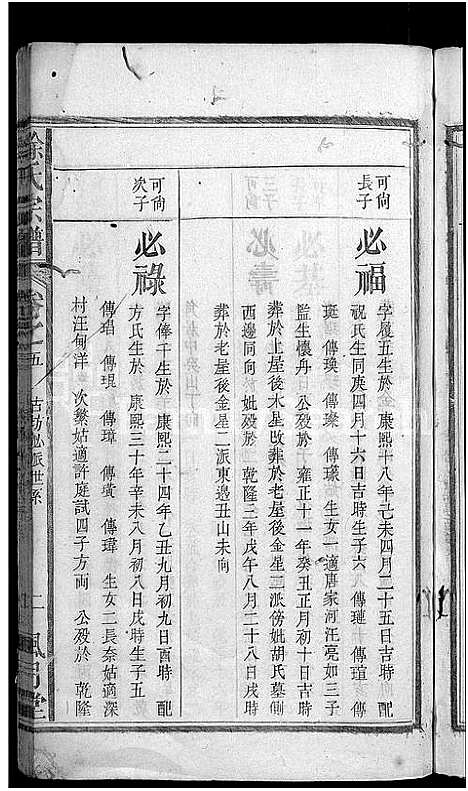 可尙
長子
必福
字履五生於 康熙十八年己未四月二十五日吉時 配
祝氏生同庚四月十六日吉時生子六 傳璉 傳瑄 傳
珽 傳瑛 傳璨 傳璟 生女一適唐家河汪亮如三子
監生懷丹 公歿於 雍正十一年癸丑正月初十日吉時
葬於上屋後水星改葬於老屋後金星二派傍妣胡氏墓側
西邊同向 妣歿於 乾隆三年戊午八月二十八日戌時
葬於老屋後金星二派東邊丑山未向
可尙
次子
必祿
字俸千生於 康熙二十四年乙丑九月初九日酉時 配
方氏生於 康熙三十年辛未八月初八日戌時生子五
傳瑁 傳琨 傳璋 傳璜 傳瑋 生女二長奈姑適深
村汪甸洋 次樂姑適許庭試四子方両 公歿於 乾隆
徐氏宗譜
卷之五
派世系
二